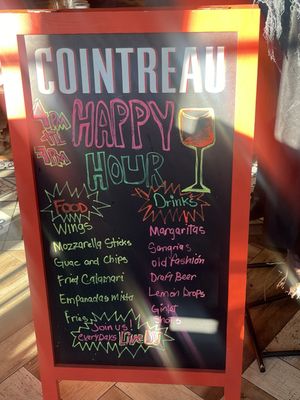 COINTREAU
4PM
TIL
7PM
HAPPY
HOUR
Food
Wings
Mozzarella Sticks
Guac and Chips
Fried Calamari
Empanadas Mixta
Fries
Drinks
Margaritas
Sangrias
old Fashion
Draft Beer
Lemon Drops
Gimlet
Shots
Join us!
everydays Live DJ